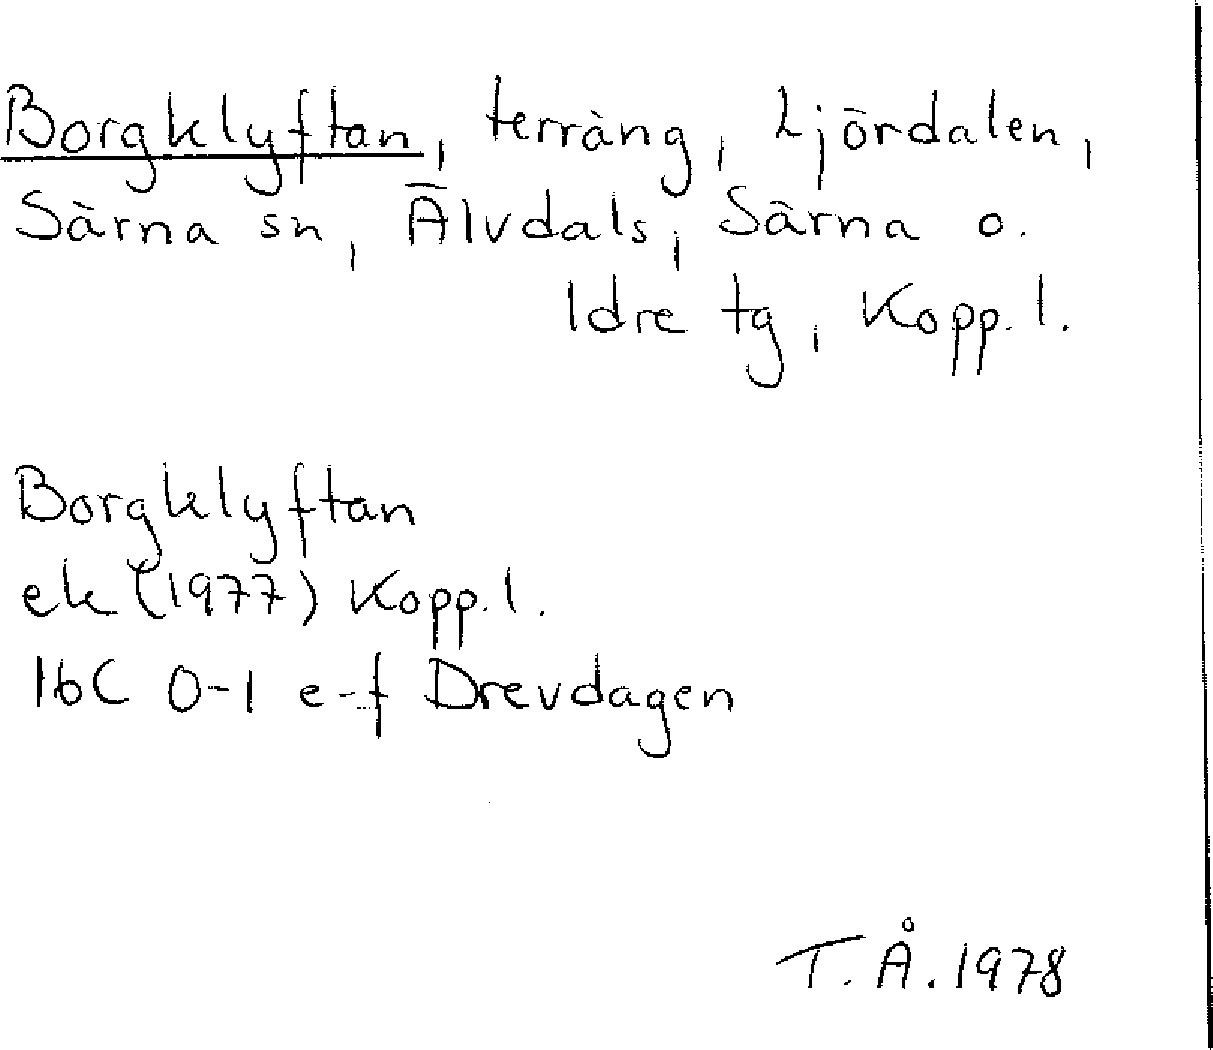 Borgklyftan, terräng, Ljördalen,
Särna sn, Älvdals, Särna o.
Idre tg, Kopp. l.
Borgklyftan
ek (1977) Kopp. l.
16C 0-1 e-f Drevdagen
T. Å. 1978